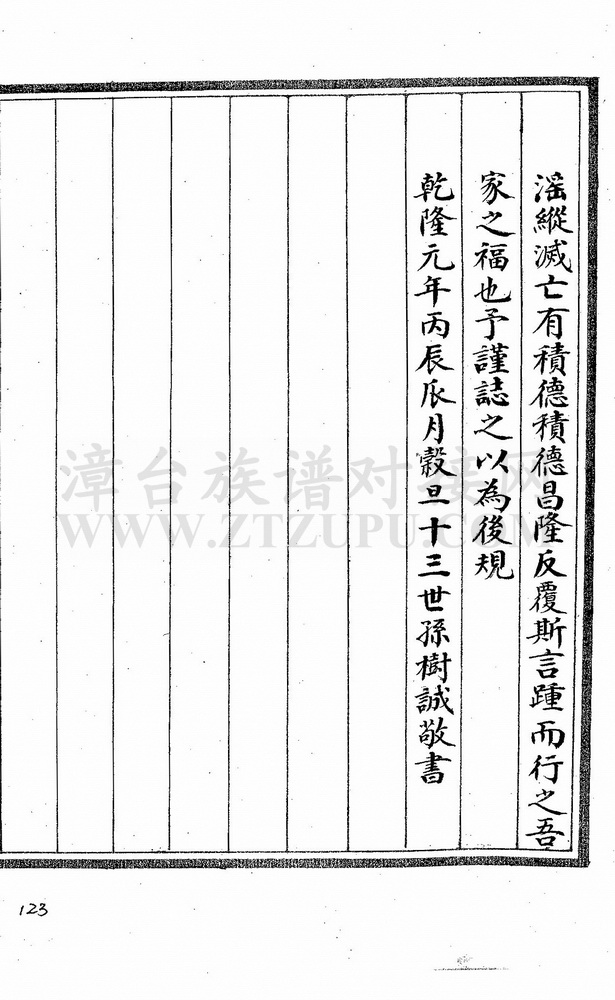 滛縱滅亡有積德積德昌隆反覆斯言踵而行之吾
家之福也予謹誌之以為後規
乾隆元年丙辰月穀旦十三世孫樹誠敬書
漳台族谱对接网
WWW.ZTZUPU.COM
123